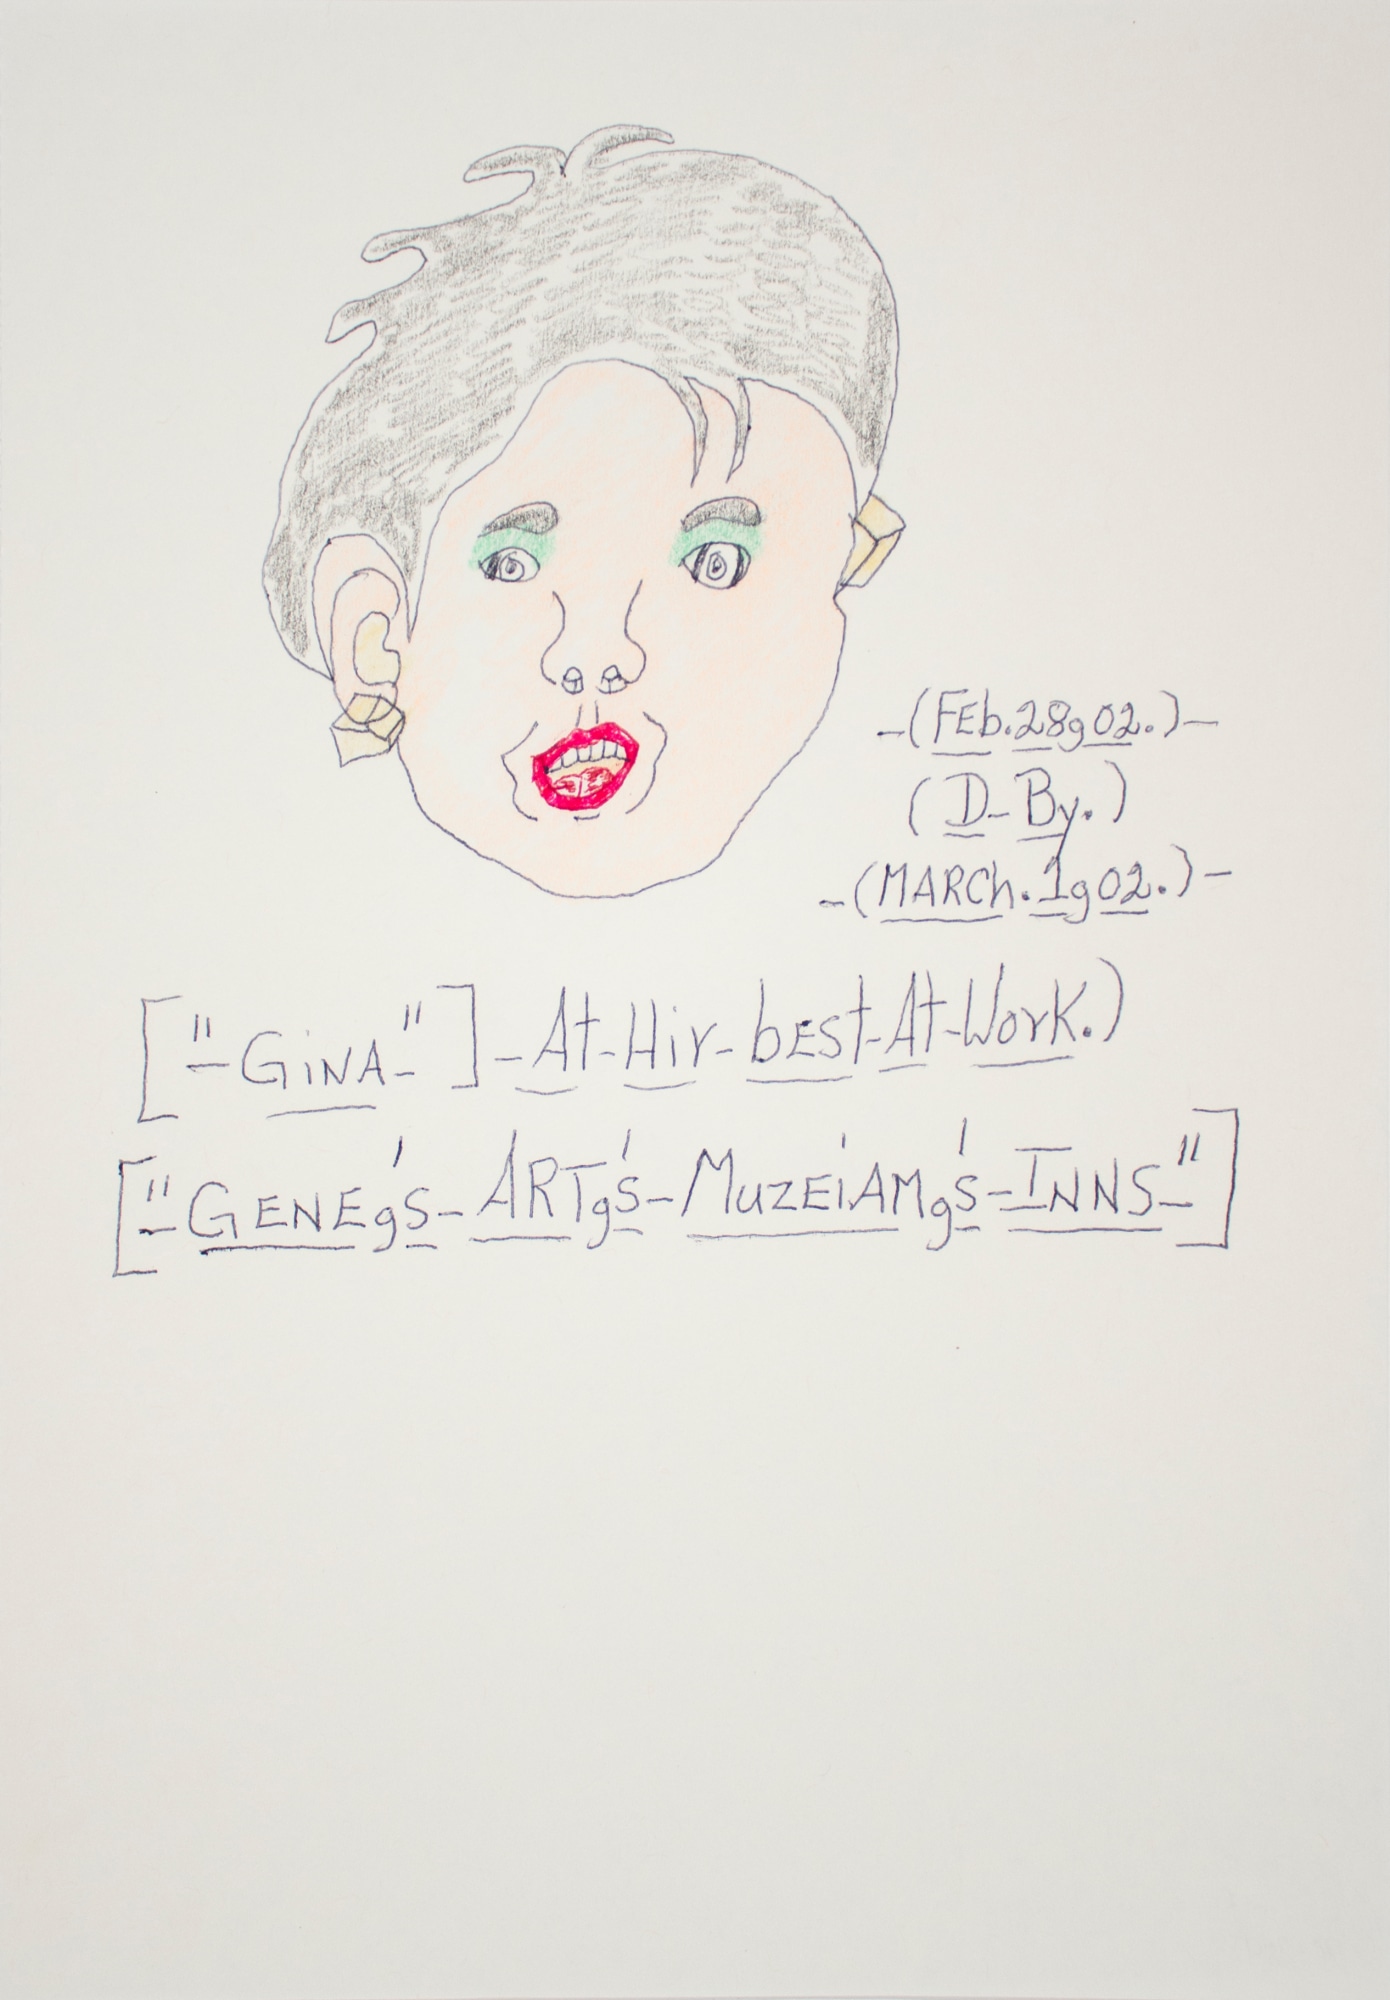 -(FEb.28g02.)-
(D-By.)
-(MARCh.1g02.)-
["-GiNA-"]-At-Hir-bEst-At-Work.)
["-GENEg's-ARTg's-MuzEiAMg's-INNS-"]